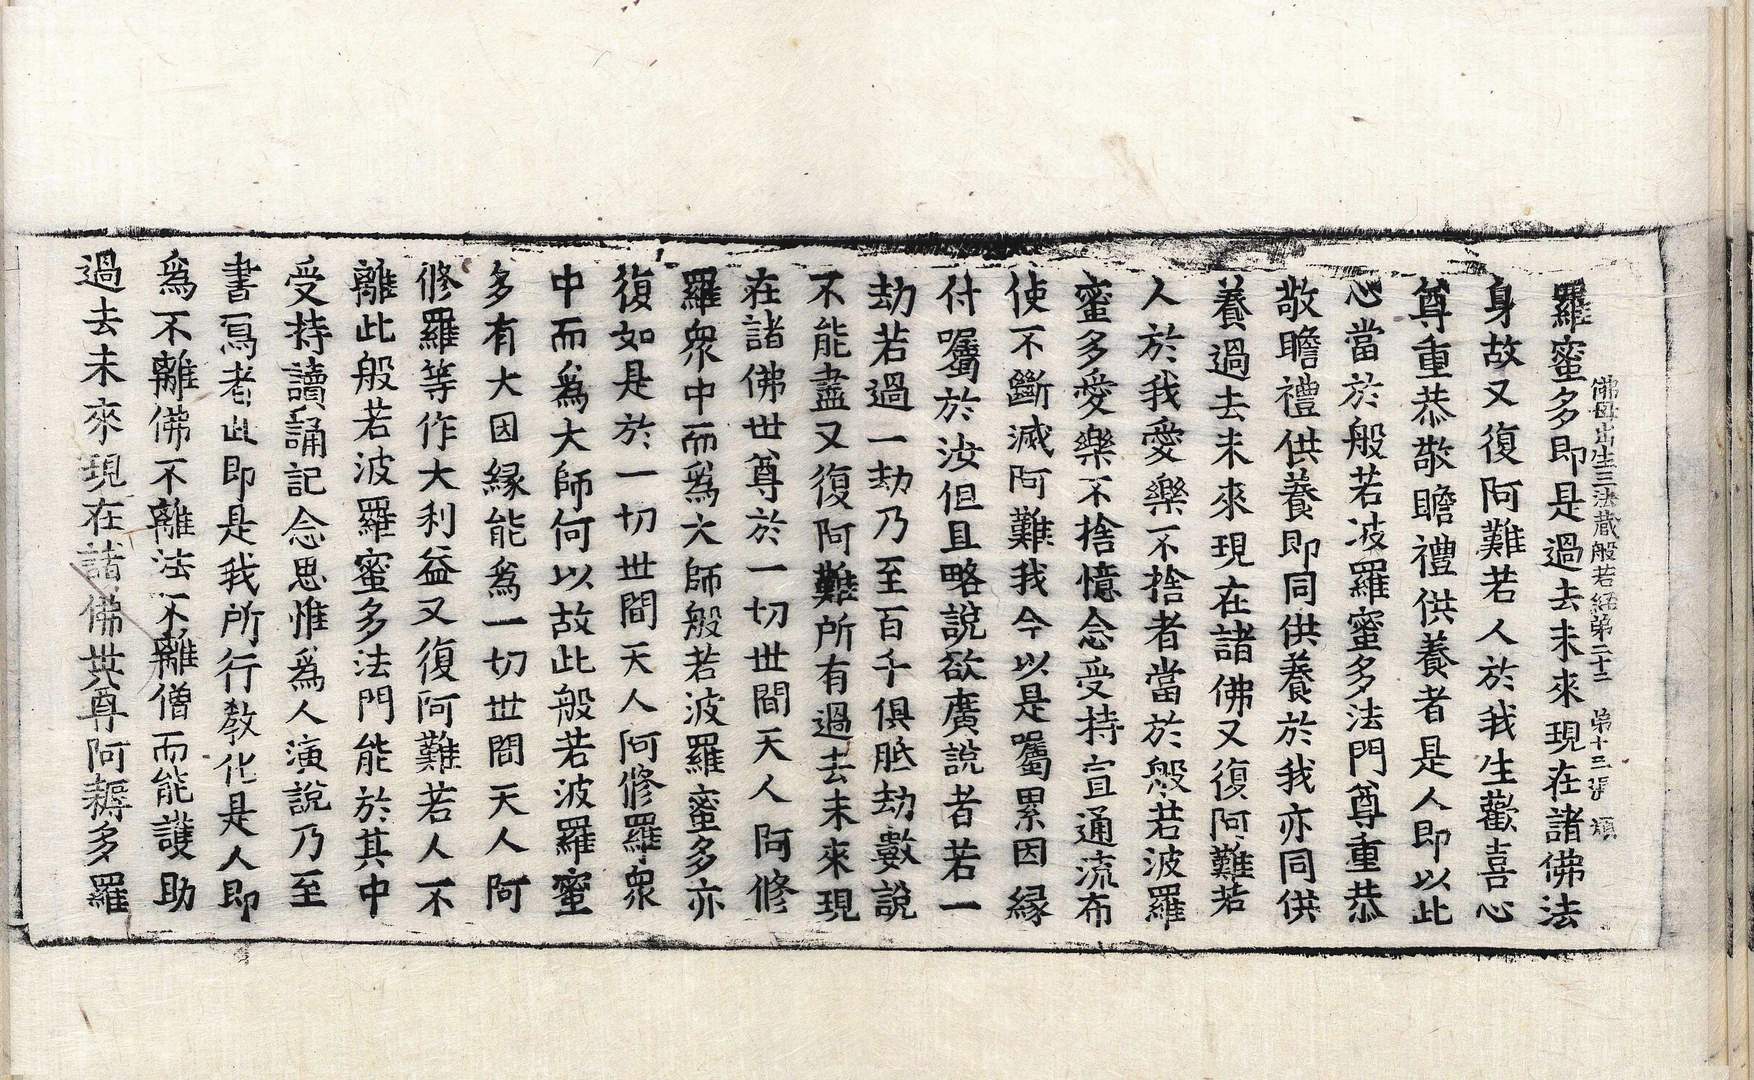 羅蜜多即是過去未來現在諸佛法
佛母出生三法藏般若經第二十三 第十三張 頃
身故又復阿難若人於我生歡喜心
尊重恭敬瞻禮供養者是人即以此
心當於般若波羅蜜多法門尊重恭
敬瞻禮供養即同供養於我亦同供
養過去未來現在諸佛又復阿難若
人於我愛樂不捨者當於般若波羅
蜜多愛樂不捨憶念受持宣通流布
使不斷滅阿難我今以是囑累因緣
付囑於汝但且略說欲廣說者若一
劫若過一劫乃至百千俱胝劫數說
不能盡又復阿難所有過去未來現
在諸佛世尊於一切世間天人阿修
羅衆中而爲大師般若波羅蜜多亦
復如是於一切世間天人阿修羅衆
中而爲大師何以故此般若波羅蜜
多有大因緣能爲一切世間天人阿
修羅等作大利益又復阿難若人不
離此般若波羅蜜多法門能於其中
受持讀誦記念思惟爲人演說乃至
書寫者此即是我所行教化是人即
爲不離佛不離法不離僧而能護助
過去未來現在諸佛世尊阿耨多羅